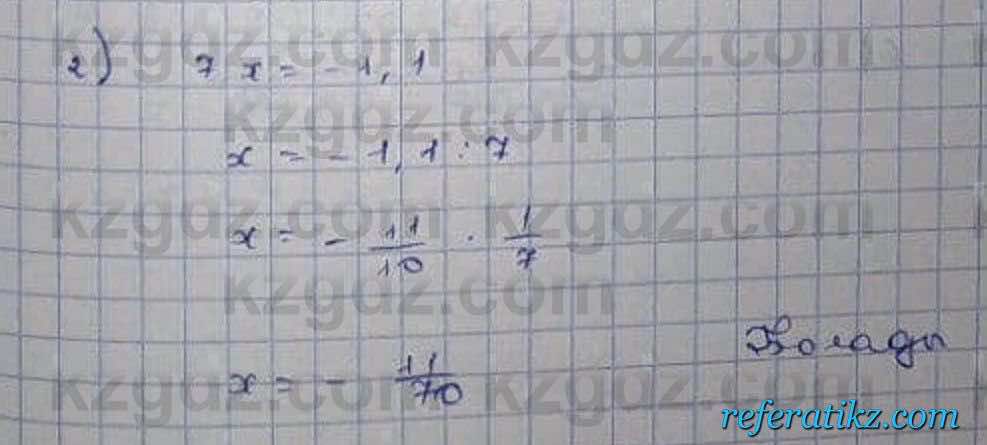 kzgdz.com kzgdz.com
2) 7x = -1,1
kzgdz.com
x = -1,1 : 7
kzgdz.com kzgdz.com
x = - 11/10 · 1/7
kzgdz.com
Жолады
x = - 11/70
kzgdz.com kzgdz.com
referatikz.com